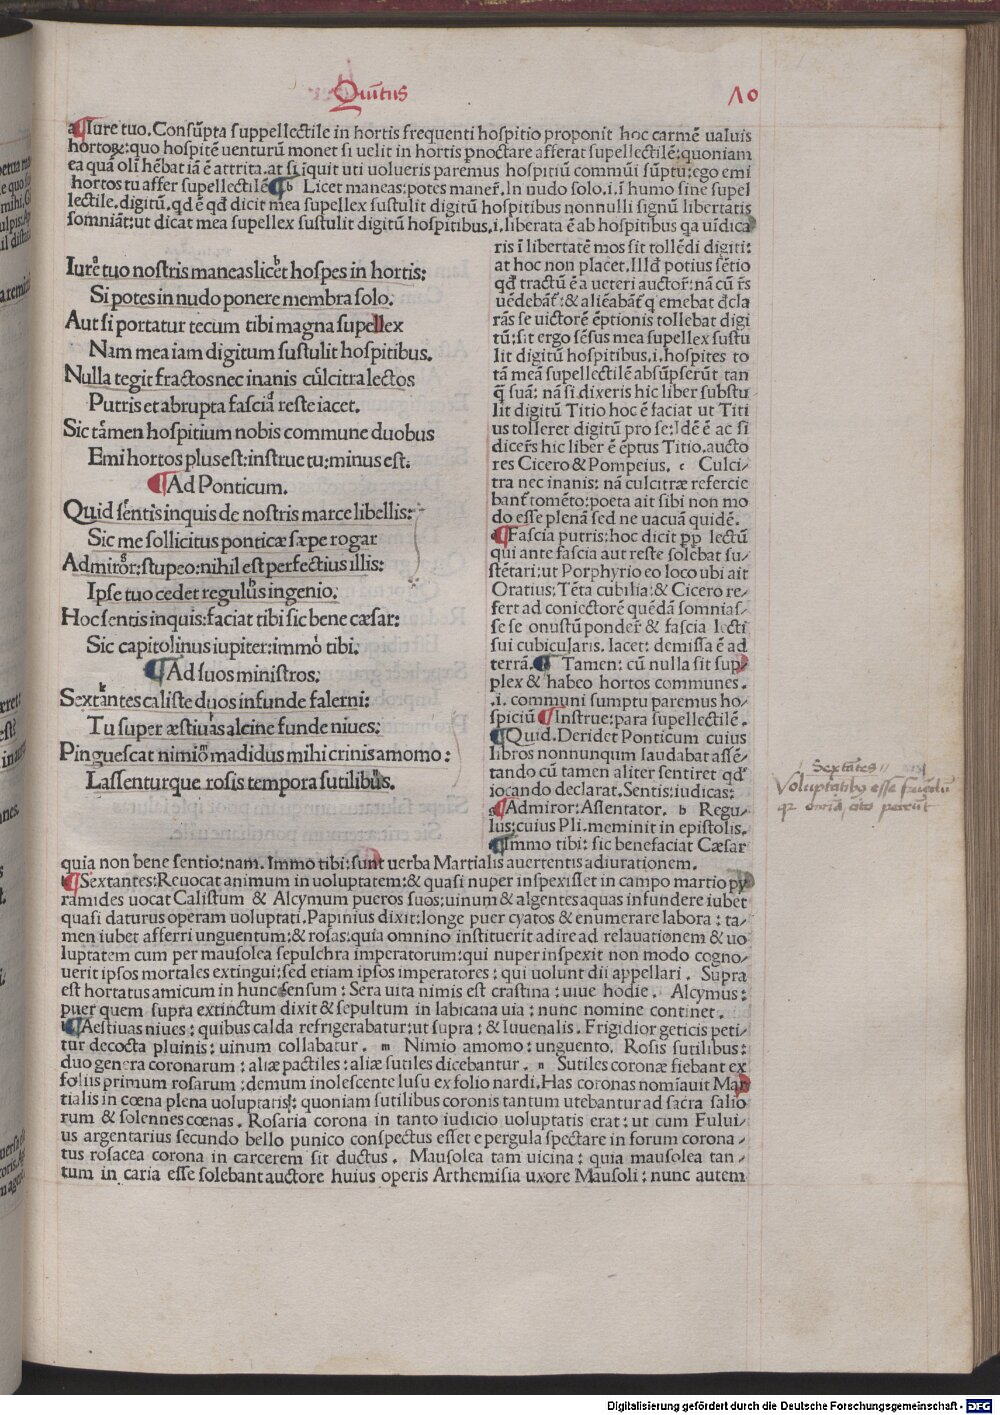 Quītus
10
a Iure tuo. Consūpta suppellectile in hortis frequenti hospitio proponit hoc carmē ualuis
hortoꝝ: quo hospitē uenturū monet si uelit in hortis pnoctare afferat supellectilē: quoniam
ea quā oli hēbat iā ē attrita. at si iquit uti uolueris paremus hospitiū commūi sūptu: ego emi
hortos tu affer supellectilē b Licet maneas: potes maner̄. In nudo solo. i. ī humo sine supel
lectile. digitū. qd ē qđ dicit mea supellex sustulit digitū hospitibus nonnulli signū libertatis
somniāt: ut dicat mea supellex sustulit digitū hospitibus. i. liberata ē ab hospitibus qa uīdica
Iure tuo nostris maneas licet hospes in hortis:
Si potes in nudo ponere membra solo.
Aut si portatur tecum tibi magna supellex
Nam mea iam digitum sustulit hospitibus.
Nulla tegit fractos nec inanis culcitra lectos
Putris et abrupta fascia reste iacet.
Sic tamen hospitium nobis commune duobus
Emi hortos plus est: instrue tu: minus est.
Ad Ponticum.
Quid sentis inquis de nostris marce libellis:
Sic me sollicitus ponticæ sæpe rogar
Admiror: stupeo: nihil est perfectius illis:
Ipse tuo cedet regulus ingenio.
Hoc sentis inquis: faciat tibi sic bene cæsar:
Sic capitolinus iupiter: immo tibi.
Ad suos ministros.
Sextantes caliste duos infunde falerni:
Tu super æstiuas alcine funde niues:
Pinguescat nimio madidus mihi crinis amomo:
Lassenturque rosis tempora sutilibus.
ris ī libertatē mos sit tollēdi digiti:
at hoc non placet. Illđ potius sētio
qđ tractū ē a ueteri auctor̄: nā cū r̄s
uēdebāt: & aliēabāt q emebat đcla
rās se uictorē ēptionis tollebat digi
tū: sit ergo sēsus mea supellex sustu
lit digitū hospitibus. i. hospites to
tā meā supellectilē absūpserūt tan
q̄ suā: nā si dixeris hic liber sustu
lit digitū Titio hoc ē faciat ut Titi
us tolleret digitū pro se: Idē ē ac si
dicer̄s hic liber ē ēptus Titio. aucto
res Cicero & Pompeius. c Culci/
tra nec inanis: nā culcitræ refercie
bant tomēto: poeta ait sibi non mo
do esse plenā sed ne uacuā quidē.
d Fascia putris: hoc dicit pp lectū
qui ante fascia aut reste solebat su/
stētari: ut Porphyrio eo loco ubi ait
Oratius: Tēta cubilia: & Cicero re/
fert ad coniectorē quēdā somnias/
se se onustū ponder̄ & fascia lecti
sui cubicularis. Iacet: demissa ē ad
terrā. Tamen: cū nulla sit sup/
plex & habeo hortos communes.
.i. communi sumptu paremus ho/
spiciū Instrue: para supellectilē.
Quid. Deridet Ponticum cuius
libros nonnunqum laudabat assē/
tando cū tamen aliter sentiret qđ
iocando declarat. Sentis: iudicas:
g Admiror: Assentator. b Regu/
lus: cuius Pli. meminit in epistolis.
Immo tibi: sic benefaciat Cæsar
quia non bene sentio: nam. Immo tibi: sunt uerba Martialis auertentis adiurationem.
Sextantes: Reuocat animum in uoluptatem: & quasi nuper inspexisset in campo martio py
ramides uocat Calistum & Alcymum pueros suos: uinum & algentes aquas infundere iubet
quasi daturus operam uoluptati. Papinius dixit: longe puer cyatos & enumerare labora: ta/
men iubet afferri unguentum: & rosas: quia omnino instituerit adire ad relauationem & uo
luptatem cum per mausolea sepulchra imperatorum: qui nuper inspexit non modo cogno/
uerit ipsos mortales extingui: sed etiam ipsos imperatores: qui uolunt dii appellari. Supra
est hortatus amicum in hunc sensum: Sera uita nimis est crastina: uiue hodie. Alcymus:
puer quem supra extinctum dixit & sepultum in labicana uia: nunc nomine continet.
Aestiuas niues: quibus calda refrigerabatur: ut supra: & Iuuenalis. Frigidior geticis peti/
tur decocta pluinis: uinum collabatur. m Nimio amomo: unguento. Rosis sutilibus:
duo genera coronarum: aliæ pactiles: aliæ sutiles dicebantur. n Sutiles coronæ fiebant ex
foliis primum rosarum: demum inolescente lusu ex folio nardi. Has coronas nomīauit Mar
tialis in cœna plena uoluptatis: quoniam sutilibus coronis tantum utebantur ad sacra salio
rum & solennes cœnas. Rosaria corona in tanto iudicio uoluptatis erat: ut cum Fului/
us argentarius secundo bello punico conspectus esset e pergula spectare in forum corona/
tus rosacea corona in carcerem sit ductus. Mausolea tam uicina: quia mausolea tan/
tum in caria esse solebant auctore huius operis Arthemisia uxore Mausoli: nunc autem
Sextātes
Voluptatibꝰ esse
omīa cito pereūt
Digitalisierung gefördert durch die Deutsche Forschungsgemeinschaft - DFG